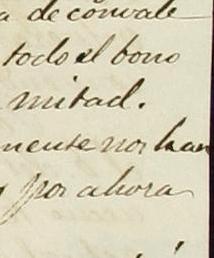 a de convale
todo el bono
mitad.
mente nos han
por ahora